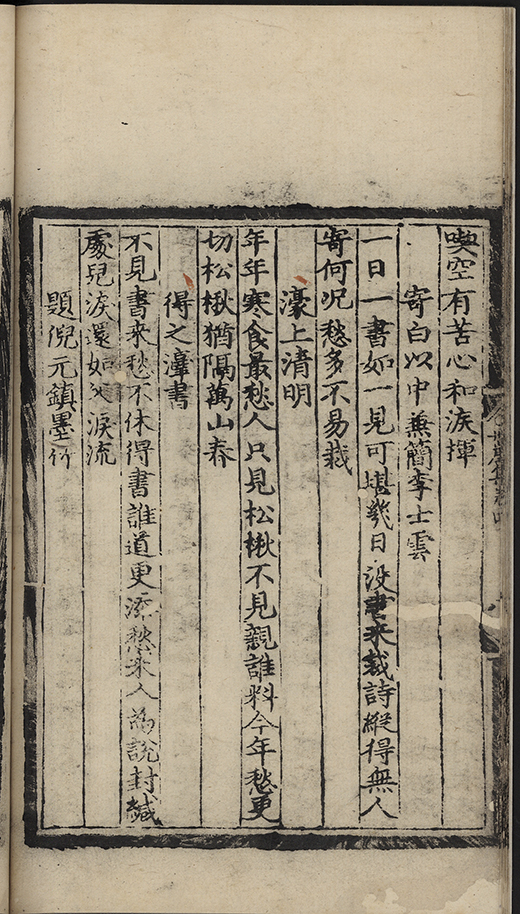 喚空有苦心和淚揮
寄白以中兼簡李士雲
一日一書如一見可堪幾日沒書來裁詩縱得無人
寄何況愁多不易裁
濠上清明
年年寒食最愁人只見松楸不見親誰料今年愁更
切松楸猶隔萬山春
得之濠書
不見書來愁不休得書誰道更添愁來人為說封緘
處兒淚還如父淚流
題倪元鎮墨竹